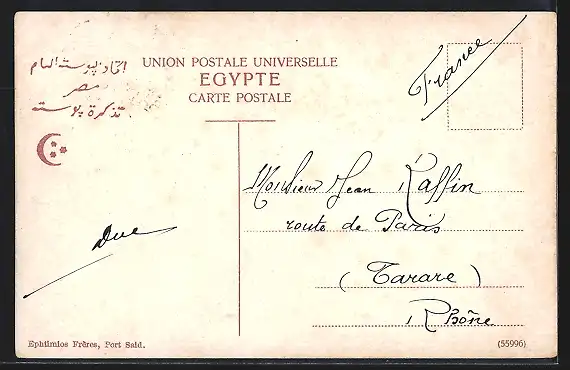 اتحاد پوسته العام
مصر
تذكرة پوسته
UNION POSTALE UNIVERSELLE
EGYPTE
CARTE POSTALE
France
Monsieur Jean Raffin
route de Paris
(Tarare)
Rhône
Ephtimios Frères, Port Said.
(55996)